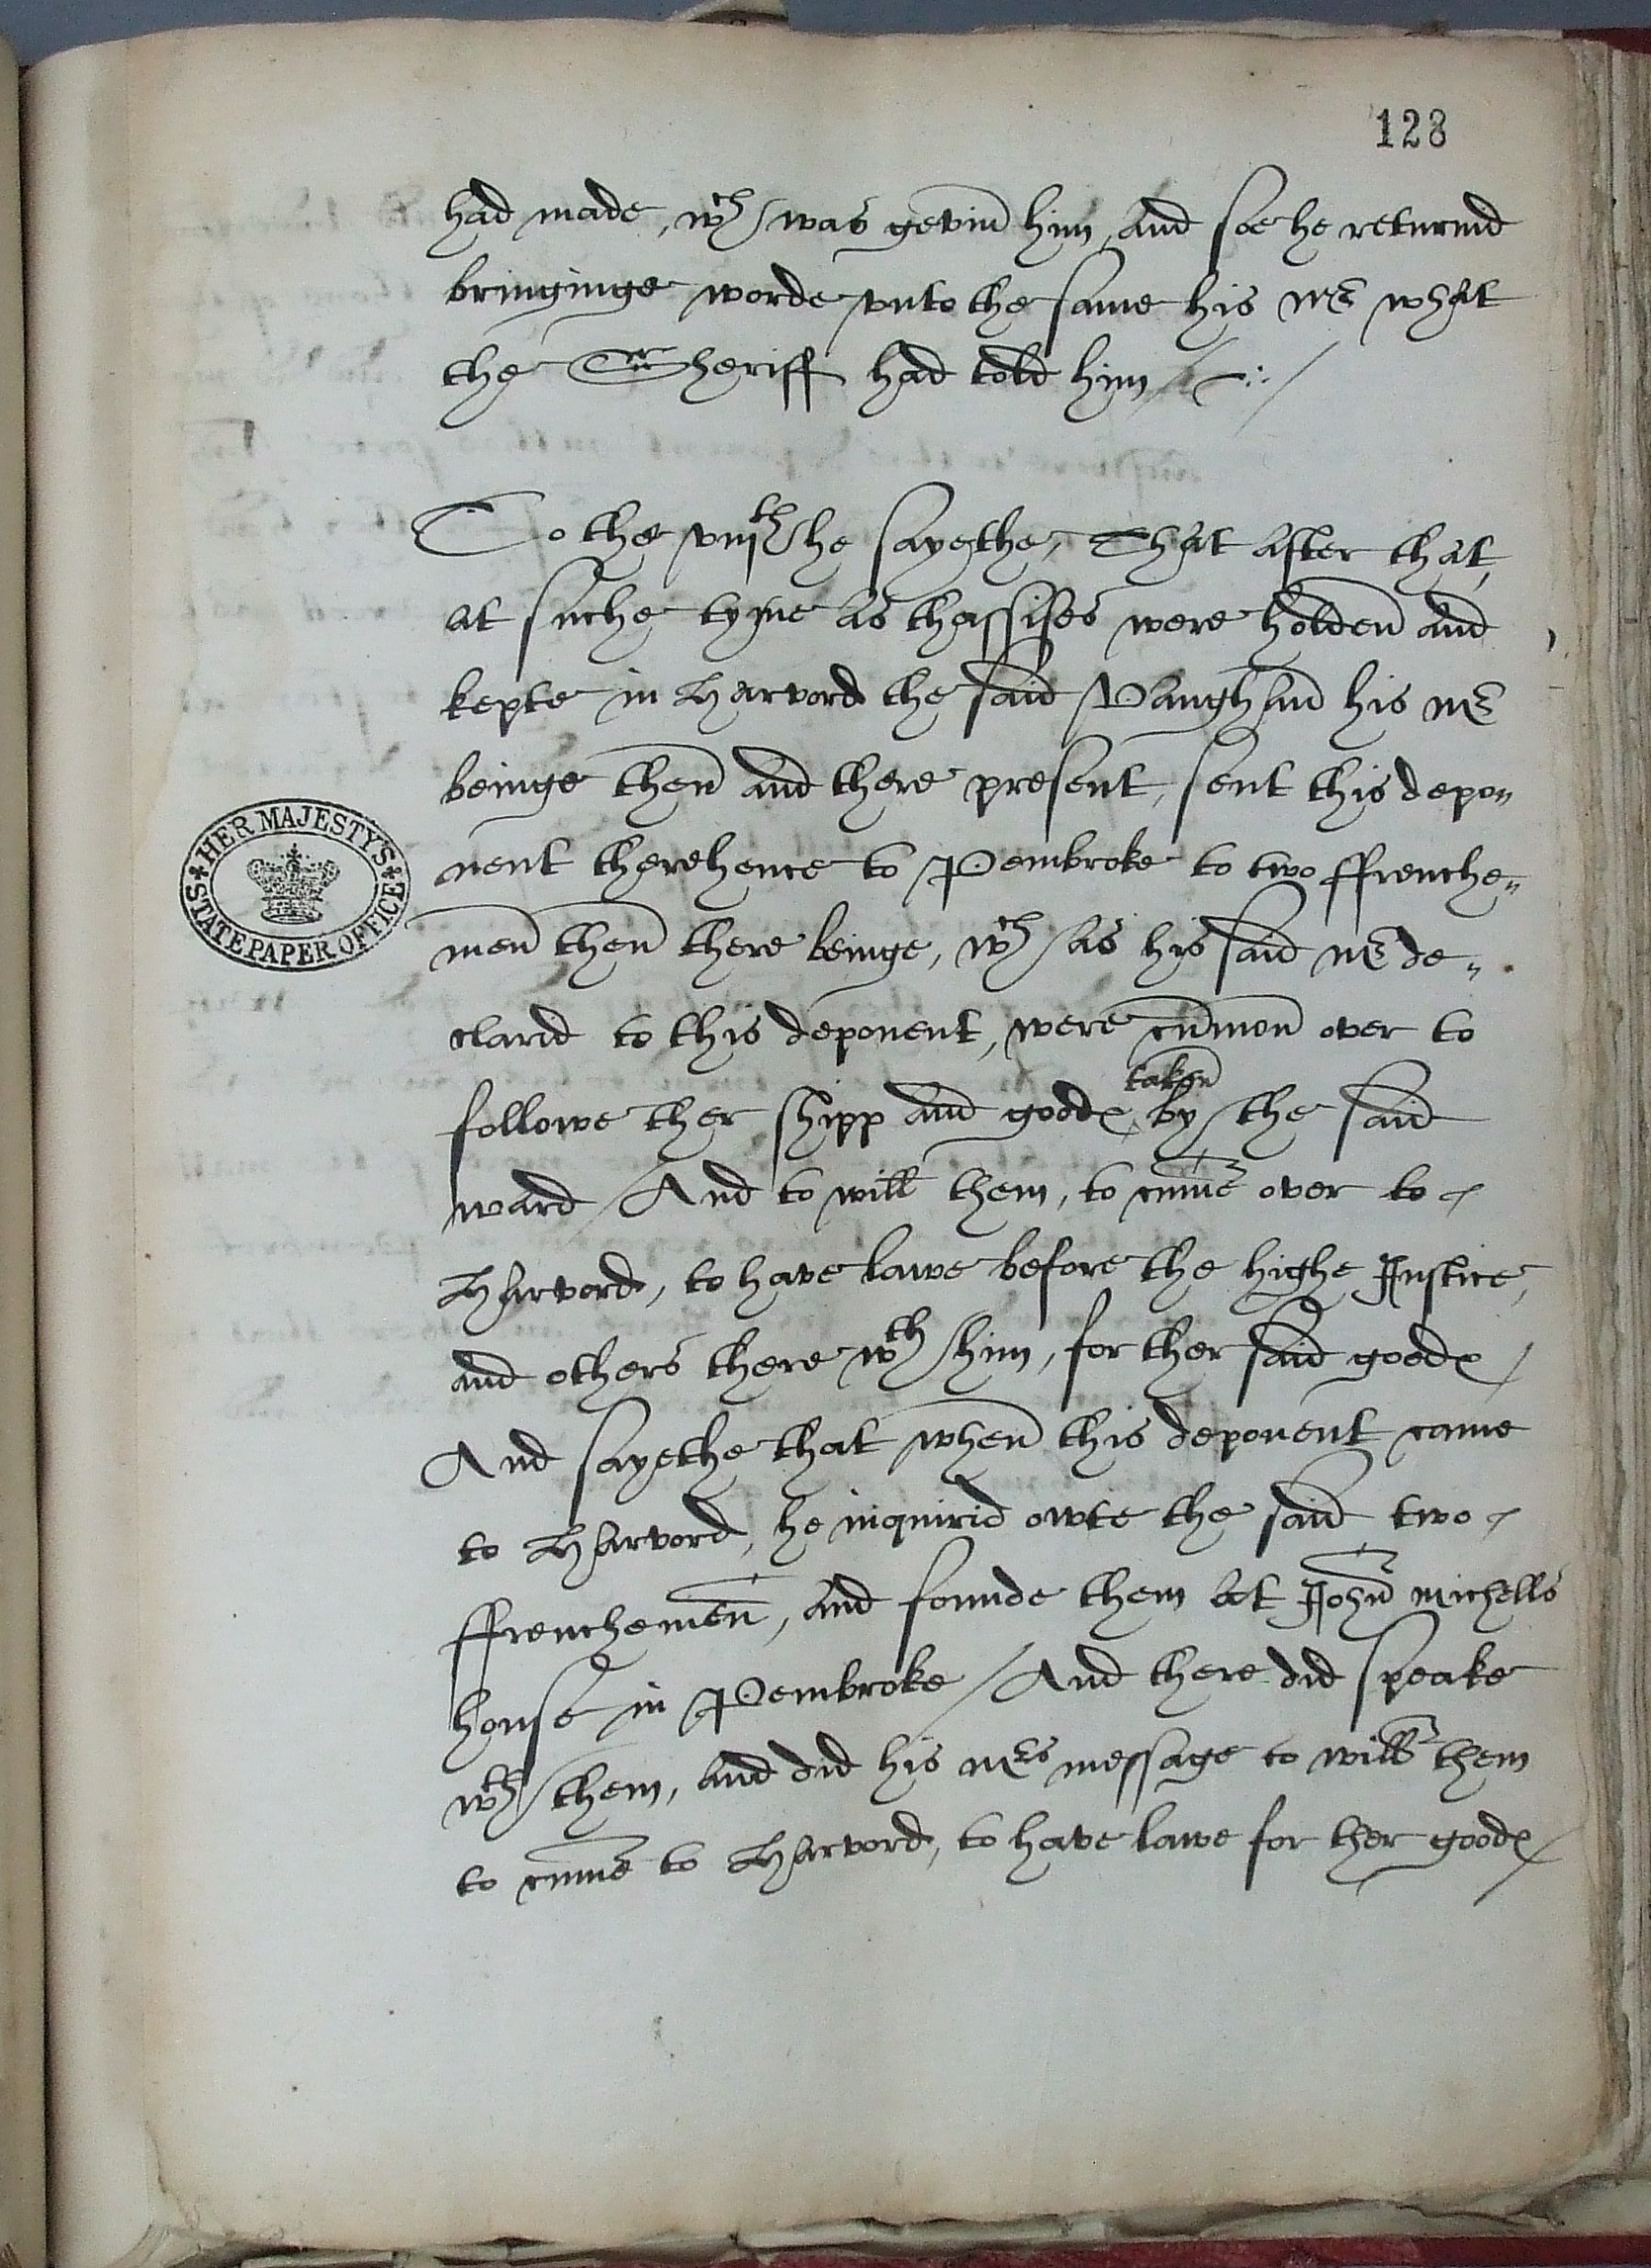 128
had made, wch was gevin him, and soe he returnid
bringinge worde unto the same his mr what
the Sheriff had told him
To the viijth he sayethe, That after that,
at suche tyme as thassises were holden and
kepte in Harvord the said Vaughan his mr
beinge then and there present, sent this depo„
nent therehence to Pembroke to two ffrenche„
men then there beinge, wch as his said mr de„
clarid to this deponent, were cummen over to
taken
followe ther shipp and goodes by the said
ward / And to will them, to cumme over to
Harvord, to have lawe before the highe Justice,
and others there wth him, for ther said goodes /
And sayethe that when this deponent came
to Harvord, he inquirid owte the said two
ffrenchemen, and founde them at John michells
house in Pembroke / And there did speake
wth them, and did his mrs message to will them
to cumme to Harvord, to have lawe for ther goodes /
HER MAJESTY'S
STATE PAPER OFFICE